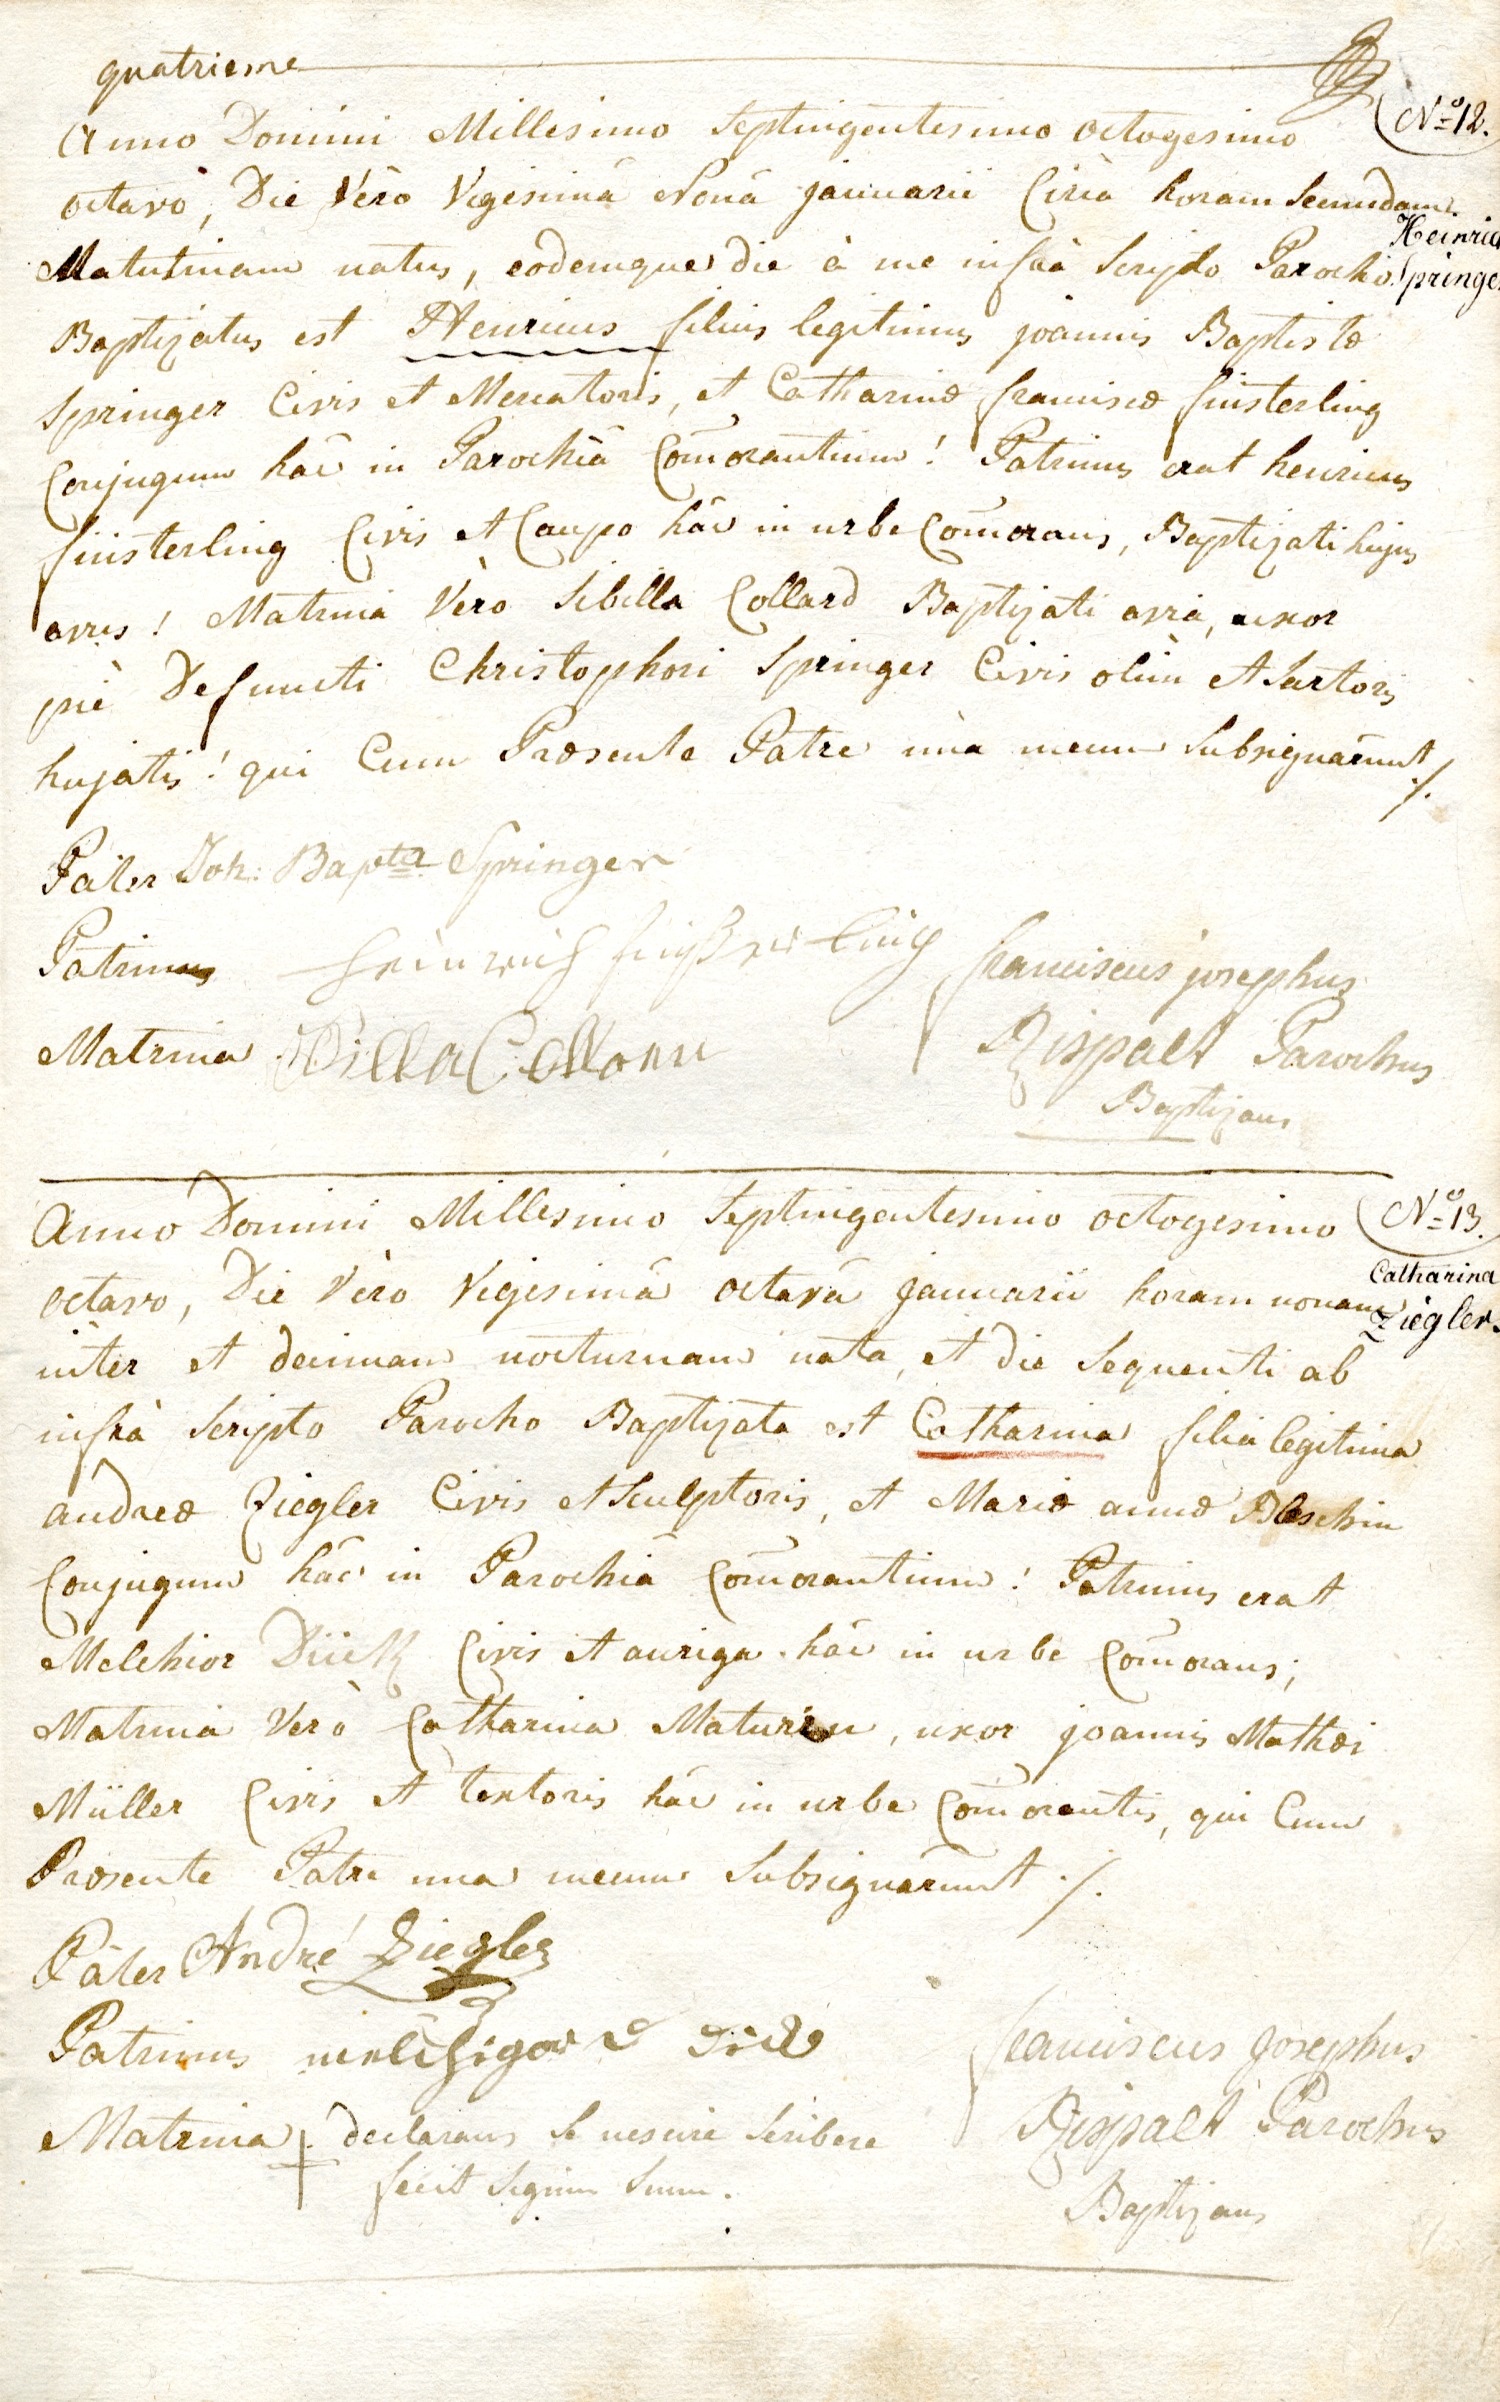 quatrieme
Nº 12.
Anno Domini Millesimo Septingentesimo octogesimo
octavo, Die Vèrò Vigesimâ Nonâ januarii Circà horam Secundam
Heinrich
Matutinam natus, eodemque die à me infrà Scripto Parocho
Springer
Baptizatus est Henricus filius legitimus joannis Baptistæ
Springer Civis et Mercatoris, et Catharinæ franciscæ finsterling
Conjugum hâc in Parochiâ Com̃orantium! Patrinus erat henricus
finsterling Civis et Caupo hâc in urbe Com̃orans, Baptizati hujus
avus! Matrina Vèro Sibilla Collard Baptizati avia, uxor
piè Defuncti Christophori Springer Civis olim et Sartoris
hujatis! qui Cum Præsente Patre unà mecum Subsignârunt ./.
Pater Joh: Bapta Springer
Patrinus heinrich finsterling
franciscus josephus
Matrina Sibilla Collard
Rispalt Parochus
Baptizans
Anno Domini Millesimo Septingentesimo octogesimo
Nº 13.
octavo, Die Vèro Vigesimâ octavâ januarii horam nonam
Catharina
Ziegler.
inter et decimam nocturnam nata, et die Sequenti ab
infrà Scripto Parocho Baptizata est Catharina filia legitima
andreæ Ziegler Civis et Sculptoris, et Mariæ annæ Bleschin
Conjugum hâc in Parochiâ Com̃orantium! Patrinus erat
Melchior Dück Civis et auriga hâc in urbe Com̃orans;
Matrina Vèrò Catharina Maturin, uxor joannis Mathæi
Müller Civis et textoris hâc in urbe Com̃orantis, qui Cum
Præsente Patre una mecum Subsignarunt ./.
Pater André Ziegler
Patrinus
franciscus Josephus
Matrina declarans se nescire Scribere
Rispalt Parochus
fecit Signum Suum.
Baptizans